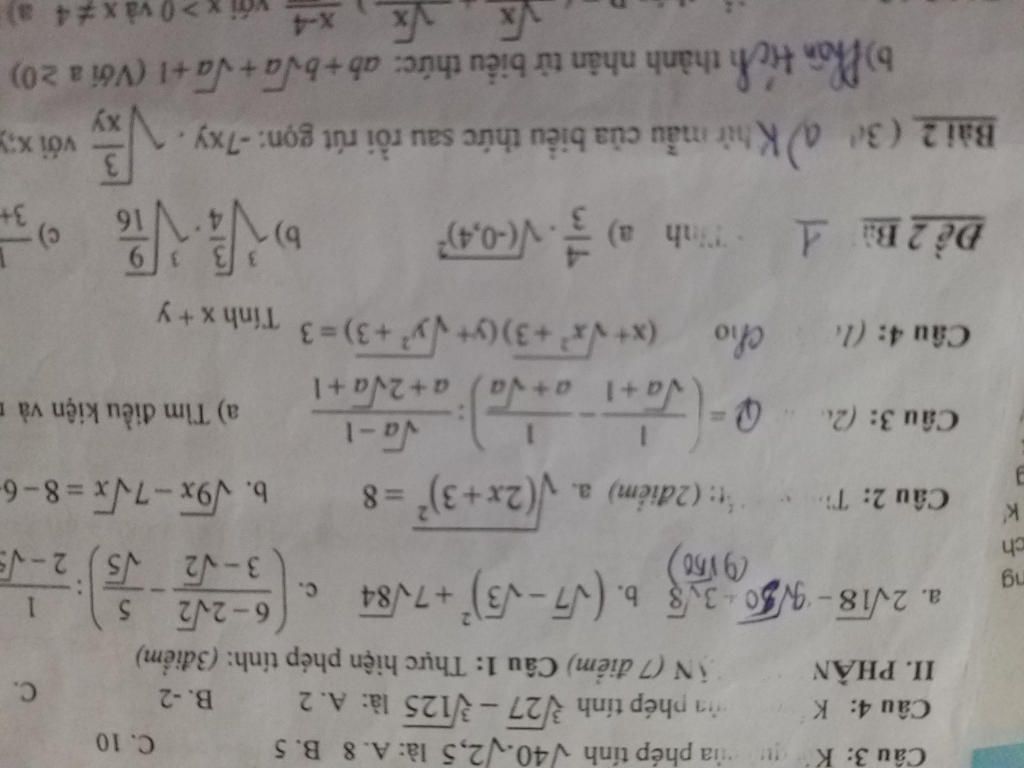 Câu 3: K qu của phép tính √40.√2,5 là: A. 8 B. 5 C. 10
Câu 4: K của phép tính ∛27 − ∛125 là: A. 2 B. -2 C.
II. PHẦN ẬN (7 điểm) Câu 1: Thực hiện phép tính: (3điểm)
a. 2√18 − 9√50 + 3√8 (9√50) b. (√7 − √3)² + 7√84 c. ((6 − 2√2)/(3 − √2) − 5/√5) : 1/(2 − √5
Câu 2: T (2điểm) a. √(2x+3)² = 8 b. √9x − 7√x = 8 − 6
Câu 3: (2 Q = (1/(√a + 1) − 1/(a + √a)) : (√a − 1)/(a + 2√a + 1) a) Tìm điều kiện và
Câu 4: (1 Cho (x + √x² + 3)(y + √y² + 3) = 3 Tính x + y
Đề 2 Bài 1 Tính a) -4/3 . √(-0,4)² b) ∛3/4 . ∛9/16 c) 3+
Bài 2 (3đ a) Khử mẫu của biểu thức sau rồi rút gọn: -7xy . √3/xy với x;y
b) Phân tích thành nhân tử biểu thức: ab + b√a + √a + 1 (Với a ≥0)
√x √x x-4 với x > 0 và x ≠ 4 a)